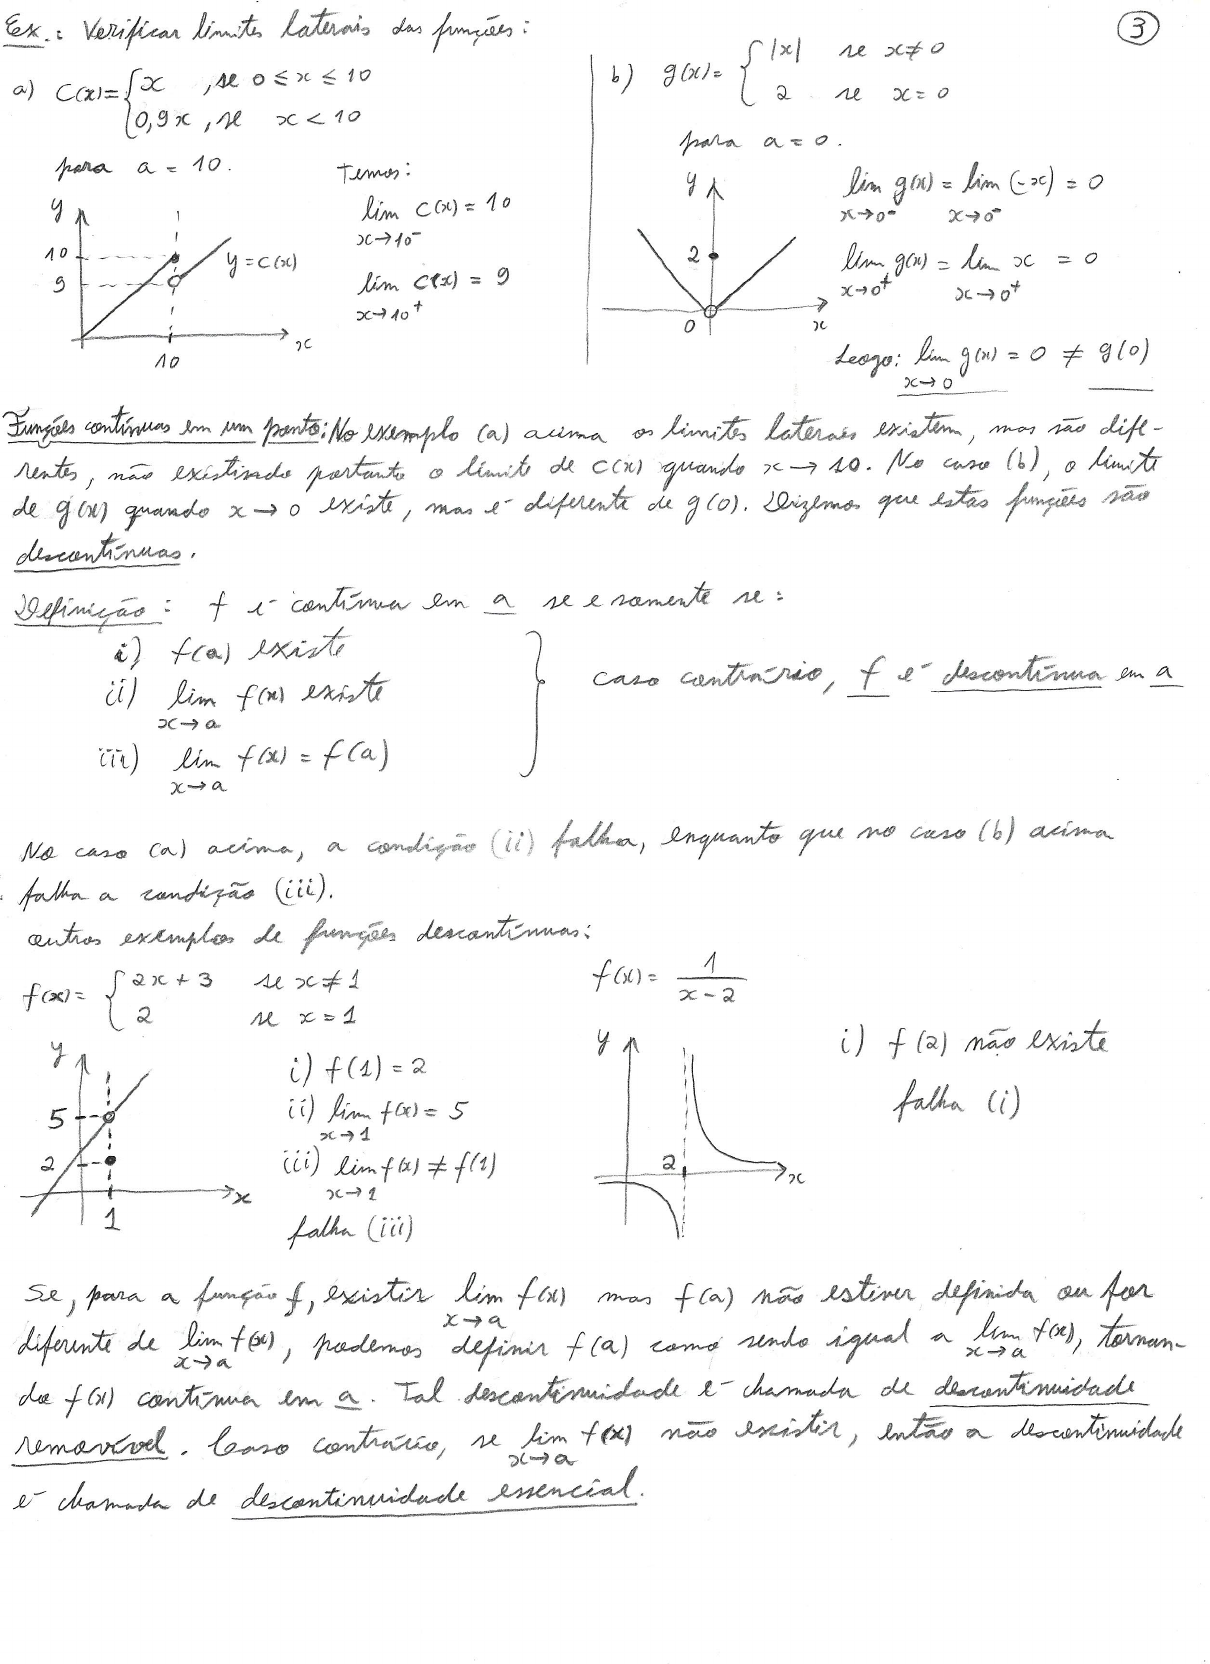 Ex.: Verificar limites laterais das funções:
3
a) C(x) = { x , se 0 ≤ x ≤ 10
0,9x , se x < 10
para a = 10.
y
10
9
y = C(x)
10
x
Temos:
lim C(x) = 10
x→10⁻
lim C(x) = 9
x→10⁺
b) g(x) = { |x| se x ≠ 0
2 se x = 0
para a = 0.
y
2
0
x
lim g(x) = lim (-x) = 0
x→0⁻ x→0⁻
lim g(x) = lim x = 0
x→0⁺ x→0⁺
Logo: lim g(x) = 0 ≠ g(0)
x→0
Funções contínuas em um ponto: No exemplo (a) acima os limites laterais existem, mas são dife-
rentes, não existindo portanto o limite de C(x) quando x → 10. No caso (b), o limite
de g(x) quando x → 0 existe, mas é diferente de g(0). Dizemos que estas funções são
descontínuas.
Definição: f é contínua em a se e somente se:
i) f(a) existe
ii) lim f(x) existe
x→a
iii) lim f(x) = f(a)
x→a
caso contrário, f é descontínua em a
No caso (a) acima, a condição (ii) falha, enquanto que no caso (b) acima
falha a condição (iii).
outros exemplos de funções descontínuas:
f(x) = { 2x + 3 se x ≠ 1
2 se x = 1
y
5
2
1
x
i) f(1) = 2
ii) lim f(x) = 5
x→1
iii) lim f(x) ≠ f(1)
x→1
falha (iii)
f(x) = 1
x - 2
y
2
x
i) f(2) não existe
falha (i)
Se, para a função f, existir lim f(x) mas f(a) não estiver definida ou for
x→a
diferente de lim f(x), podemos definir f(a) como sendo igual a lim f(x), tornan-
x→a x→a
do f(x) contínua em a. Tal descontinuidade é chamada de descontinuidade
removível. Caso contrário, se lim f(x) não existir, então a descontinuidade
x→a
é chamada de descontinuidade essencial.